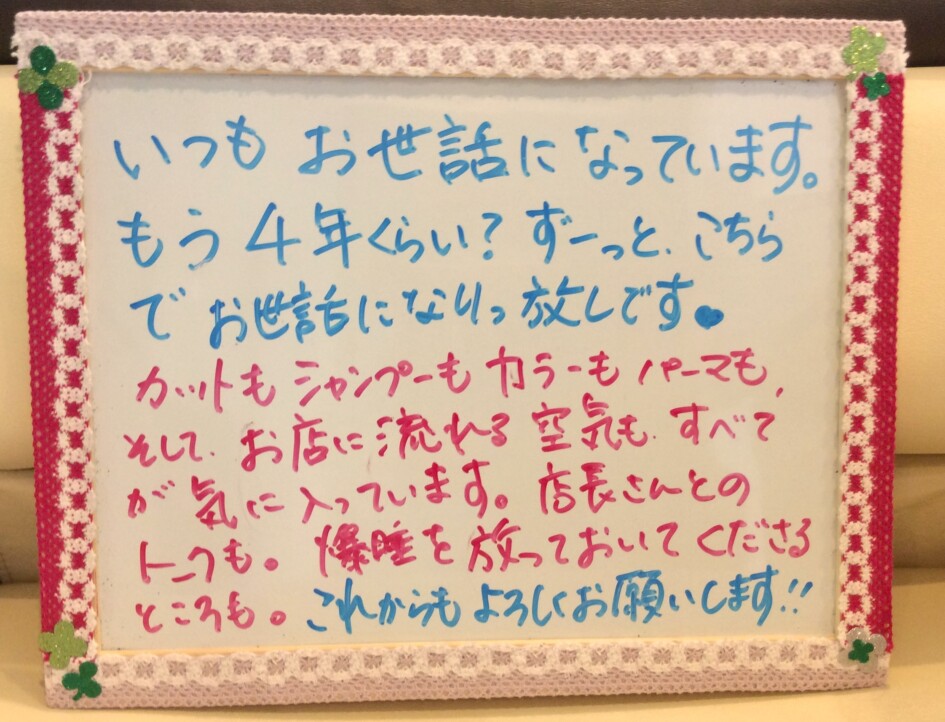 いつも お世話に なっています。
もう 4年くらい？ ずーっと、こちら
で お世話になりっ放しです。♥
カットも シャンプーも カラーも パーマも、
そして、お店に 流れる 空気も、すべて
が 気に 入っています。店長さんとの
トークも。爆睡を 放っておいて くださる
ところも。これからも よろしくお願いします!!